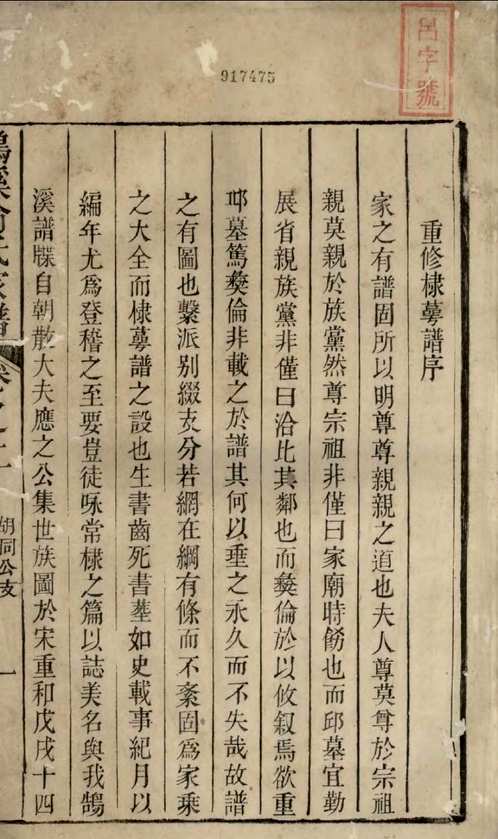 呂字號
917475
重修棣蕚譜序
家之有譜固所以明尊尊親親之道也夫人尊莫尊於宗祖
親莫親於族黨然尊宗祖非僅曰家廟時餝也而邱墓宜勤
展省親族黨非僅曰洽比其鄰也而彜倫於以攸叙焉欲重
邱墓篤彜倫非載之於譜其何以垂之永久而不失哉故譜
之有圖也繫派别綴支分若網在綱有條而不紊固爲家乘
之大全而棣蕚譜之設也生書齒死書塟如史載事紀月以
編年尤爲登稽之至要豈徒咏常棣之篇以誌美名與我鵠
溪譜牒自朝散大夫應之公集世族圖於宋重和戊戌十四
鵠溪俞氏家譜
卷之二
胡同公支
一